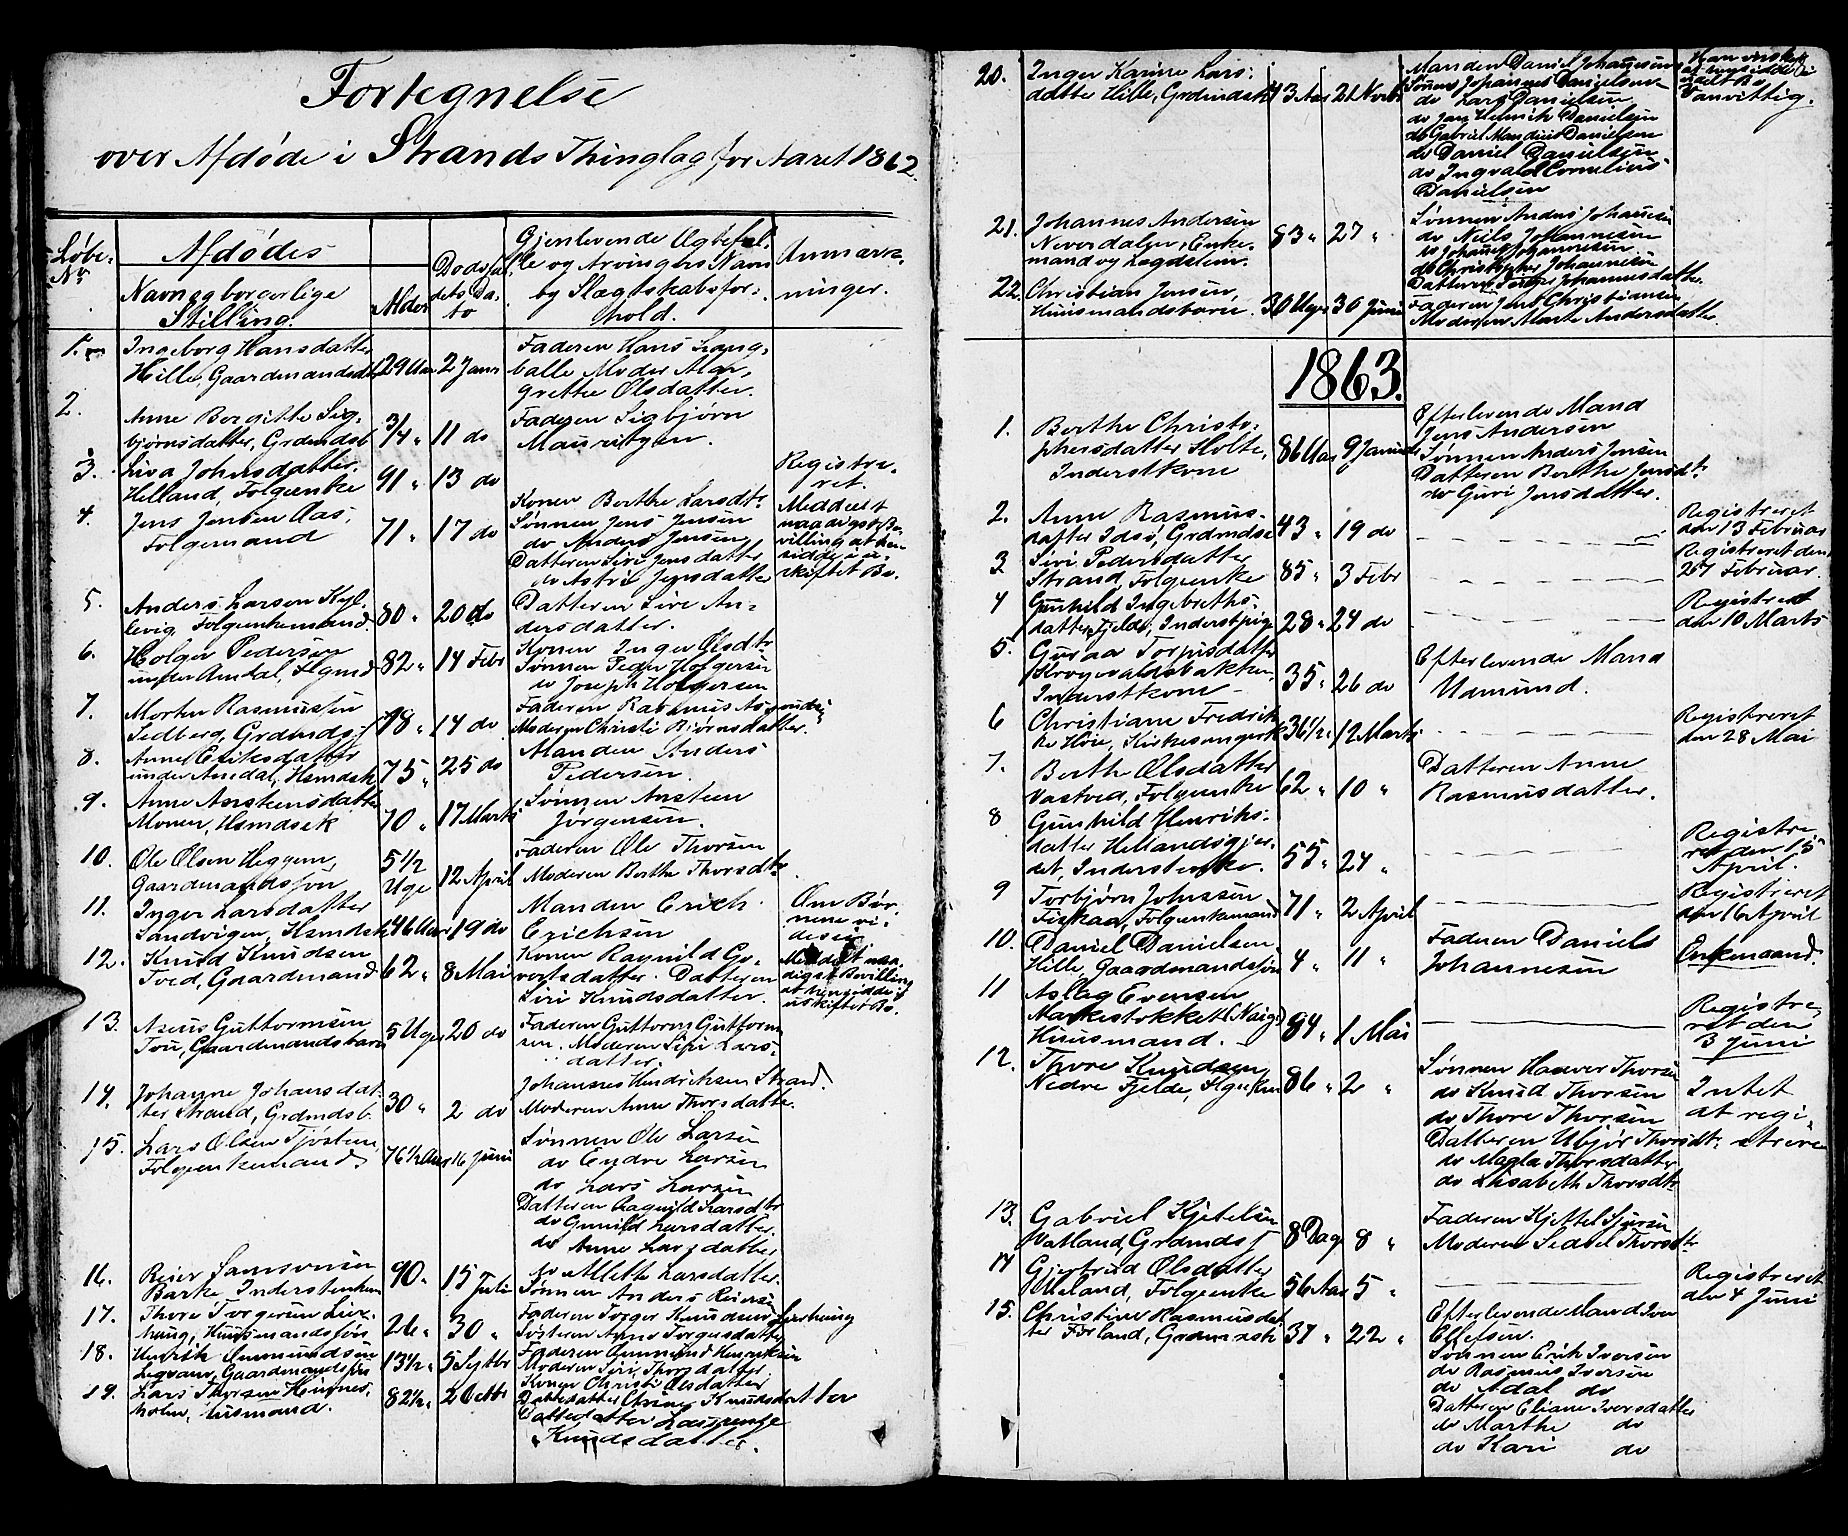 Fortegnelse
over Afdøde i Strands Thinglag for Aaret 1862.
Løbe
No
Afdødes
Navn og borgerlige
Stilling.
Alder
Dødsfal
dets Da-
to
Gjenlevende Ægtefæl-
le og Arvingers Navn
og Slægtskabsfor-
hold.
Anmærk-
ninger.
1.
Ingeborg Hansdatter
Hille, Gaardmandsdt
29 Aar
2 Janr
Faderen Hans Lang-
balle Moder Mar-
grethe Olsdatter.
2.
Anne Bergitte Sig-
bjørnsdatter, Grdmdsb
3/4 "
11 do
Faderen Sigbjørn
Mauritzen.
3.
Siva Johnsdatter
Helland, Folgeenke
91 "
13 do
Registre-
ret.
4.
Jens Jensen Aas,
Folgemand
71 "
17 do
Konen Berthe Larsdtr
Sønnen Jens Jensen
do Anders Jensen
Datteren Siri Jensdatter
do Astri Jensdatter
Meddelt
naadigst Be-
villing at hen-
sidde i u-
skiftet Bo.
5.
Anders Larsen Kyl-
levig, Folgeenkemand.
80 "
20 do
Datteren Siri An-
dersdatter.
6.
Holger Pedersen
under Amdal,
82 "
14 Febr
Konen Inger Olsdtr
Sønnen Peder Holgersen
do Joseph Holgersen
7.
Morten Rasmussen
Sedberg, Grdmds.
78 "
14 do
Faderen Rasmus
Moderen Christi Bjørnsdatter.
8.
Anne Eriksdatter
under Amdal, Hsmdsk
75 "
25 do
Manden Anders
Pedersen.
9.
Anne Anstensdatter
Monen, Hsmdsek
70 "
17 Marts
Sønnen Ansteen
Jørgensen.
10.
Ole Olsen Heggem,
Gaardmandssøn
5 1/2
Uge
12 April
Faderen Ole Thorsen
Moderen Berthe Thorsdtr
11.
Inger Larsdatter
Sandvigen, Hsmdsk
46 Aar
19 do
Manden Erich
Erichsen
Om Bør-
nene vi-
des ei
12.
Knud Knudsen
Tved, Gaardmand
62 "
8 Mai
Konen Ragnild Go-
vertsdatter. Datteren
Siri Knudsdatter.
Meddelt naa-
digst Bevilling
at hensidde i
uskiftet Bo.
13.
Asens Guttormsen
Tou, Gaardmandsbarn
5 Uger
20 do
Faderen Guttorm Guttorm-
sen. Moderen Siri Lars-
datter.
14.
Johanne Johansdat-
ter Strand, Grdmdsb.
30 "
2 do
Johannes Hendrichsen Strand.
Moderen Anne Thorsdatter.
15.
Lars Olsen Tjøstem
Folgeenkemand
76 1/2 Aar
16 Juni
Sønnen Ole Larsen
do Endre Larsen
do Lars Larsen
Datteren Ragnild Larsdtr
do Gunild Larsdatter.
do Anne Larsdatter
do Allette Larsdatter.
16.
Reier Samsonsen
Barke, Inderstenkem
90 "
15 Juli
Sønnen Anders Reiersen
17.
Thore Torgersen Lier-
hung, Huusmandssøn
26 "
30 "
Faderen Torger Knudsen Lierhung
Søsteren Anne Torgersdatter
18.
Henrik Emmundsen
Leqvam, Gaardmandssøn
13 1/2 "
5 Septbr
Faderen Emmund Henriksen
Moderen Siri Thorsdatter
19.
Lars Thorsen Heignes-
holm, Husmand.
82 1/2 "
2 Octbr
Konen Christi Olsdatter
Datterdatter Christine Knudsdatter
Datterdatter Laurense
Knudsdatter.
20.
Inger Karine Lars-
datter Hille, Grdmdsk
43 Aar
21 Novbr
Manden Daniel Johannesen
Sønnen Johannes Danielsen
do Lars Danielsen
do Jan Henrik Danielsen
do Gabriel Mandius Danielsen
do Daniel Danielsen
do Ingvald Cornelius
Danielsen
Vanvittig.
21.
Johannes Andersen
Neverdalen, Enke-
mand og Lægdslem.
83 "
27 "
Sønnen Anders Johannesen
do Niels Johannesen
do Johannes Johannesen
do Christopher Johannesen
Datteren Inger Johannesdatter.
22.
Christian Jensen,
Huusmandsbarn.
30 Uger
30 Juni
Faderen Jens Christiansen
Moderen Marte Andersdatter.
1863.
1.
Berthe Christo-
phersdatter Holte,
Inderstkone
86 Aar
9 Januar
Efterlevende Mand
Jens Andersen
Sønnen Anders Jensen
Datteren Berthe Jensdtr
do Guri Jensdatter.
2.
Anne Rasmus-
datter Idsø, Grdmdsk
43 "
19 do
Registreret
den 13 Februar
3
Siri Pedersdatter
Strand, Folgeenke
85 "
3 Febr
Registreret den
27 Februar.
4
Gunhild Ingebreths-
datter Fjelde, Inderstpige
28 "
24 do
Registreret
den 10 Marts
5.
Guraa Torjusdatter
Krogevoldsbakken
Inderstkone
35 "
26 do
Efterlevende Mand
Udmund.
6
Christiane Fredrik-
ke Høie, Kirkesangersk
36 1/2 "
12 Marts
Registreret
den 28 Mai
7.
Berthe Olsdatter
Vastved, Folgeenke
62 "
10 "
Datteren Anne
Rasmusdatter.
8
Gunhild Henriks-
datter Hellandsgjer-
det, Inderstenke.
55 "
24 "
Registre-
ret den 15
April.
9
Torbjørn Johnssen
Fiskaa, Folgeenkemand
71 "
2 April
Registreret
den 16 April
10.
Daniel Danielsen
Hille, Gaardmandssøn
4 "
11 "
Faderen Daniel
Johannesen
Enkemand.
11
Aslag Evensen
Markestokket (Vaige)
Huusmand.
84 "
1 Mai
Registre-
ret den
3 Juni
12.
Thore Knudsen
Nedre Fjelde,
86 "
2 "
Sønnen Haaver Thorsen
do Knud Thorsen
do Thore Thorsen
Datteren Ubjør Thorsdtr
do Magla Thorsdatter
do Elisabeth Thorsdtr
Intet
at regi-
strere
13.
Gabriel Kjetelsen
Vatland, Grdmdss
8 Dage
8 "
Faderen Kjettel Sjursen
Moderen Sedsel Thorsdtr
14
Gjertrud Olsdatter
Meland, Folgeenke
56 Aar
5 "
Registreret
den 4 Juni
15.
Christine Rasmusdat-
ter Førland, Grdmdsk
37 "
22 "
Efterlevende Mand Iver
Ellefsen.
Sønnen Erik Iversen
do Rasmus Iversen
do Adal do
Datteren Eliane Iversdatter
do Marthe do
do Kari do